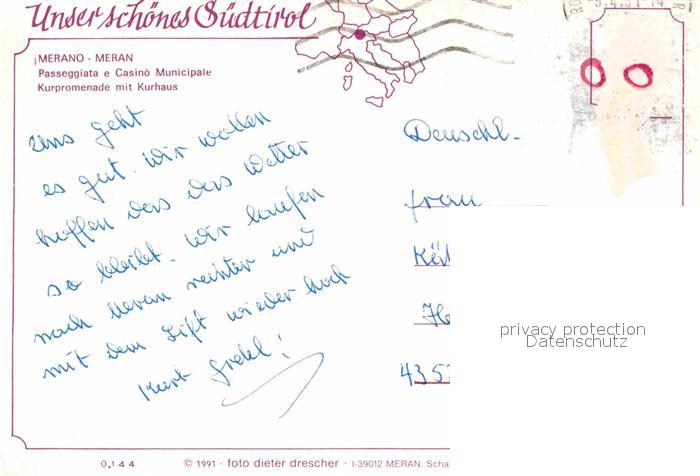 Unser schönes Südtirol
MERANO - MERAN
Passeggiata e Casinò Municipale
Kurpromenade mit Kurhaus
Uns geht
es gut. wir wollen
hoffen das das Wetter
so bleibt. wir laufen
nach Meran reiter und
mit dem Lift wieder hoch
Kurt Gretel!
Deuschl.
frau
Kät
He
435
privacy protection
Datenschutz
0.144 © 1991 · foto dieter drescher · I-39012 MERAN, Scha